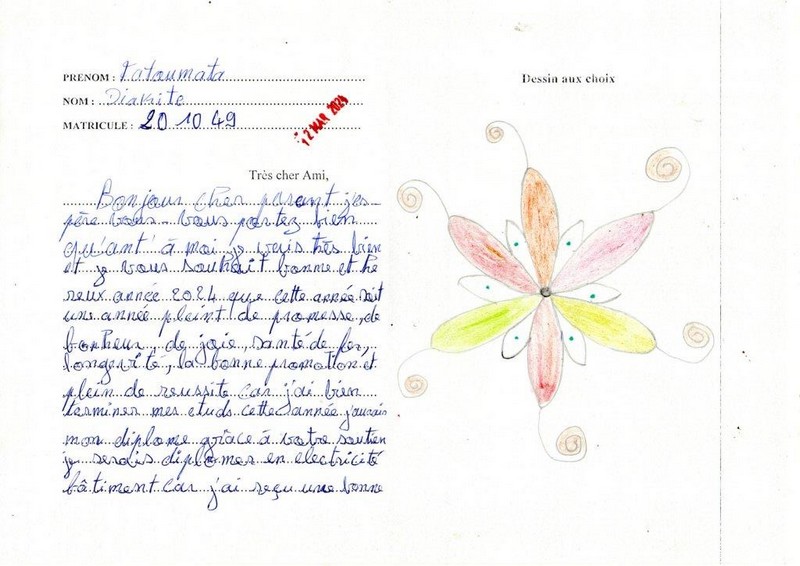 PRENOM : Fatoumata
NOM : Diakite
MATRICULE : 20 10 49
12 MAR 2024
Très cher Ami,
Bonjour cher parant j'es-
père vous vous portez bien
qu'ant' à moi je vais très bien
et je vous souhait bonne et he
reux année 2024 que cette année soit
une année pleint de promesse, de
bonheur, de joie, santé de fer,
longevité, la bonne promotion et
plein de reussite car j'ai bien
terminer mes etuds cette année j'aurais
mon diplome grâce à votre soutien
je serais diplômer en electricité
bâtiment car j'ai reçu une bonne
Dessin aux choix